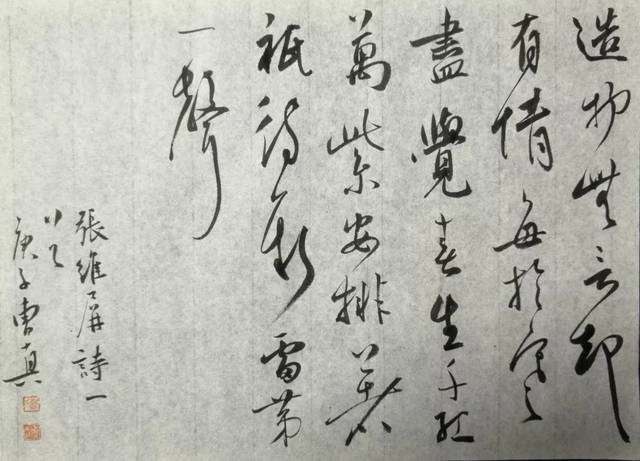 造物無言却
有情每於寒
盡覺春生千紅
萬紫安排著
祇待新雷第
一聲
張維屏詩一
首
庚子曹真